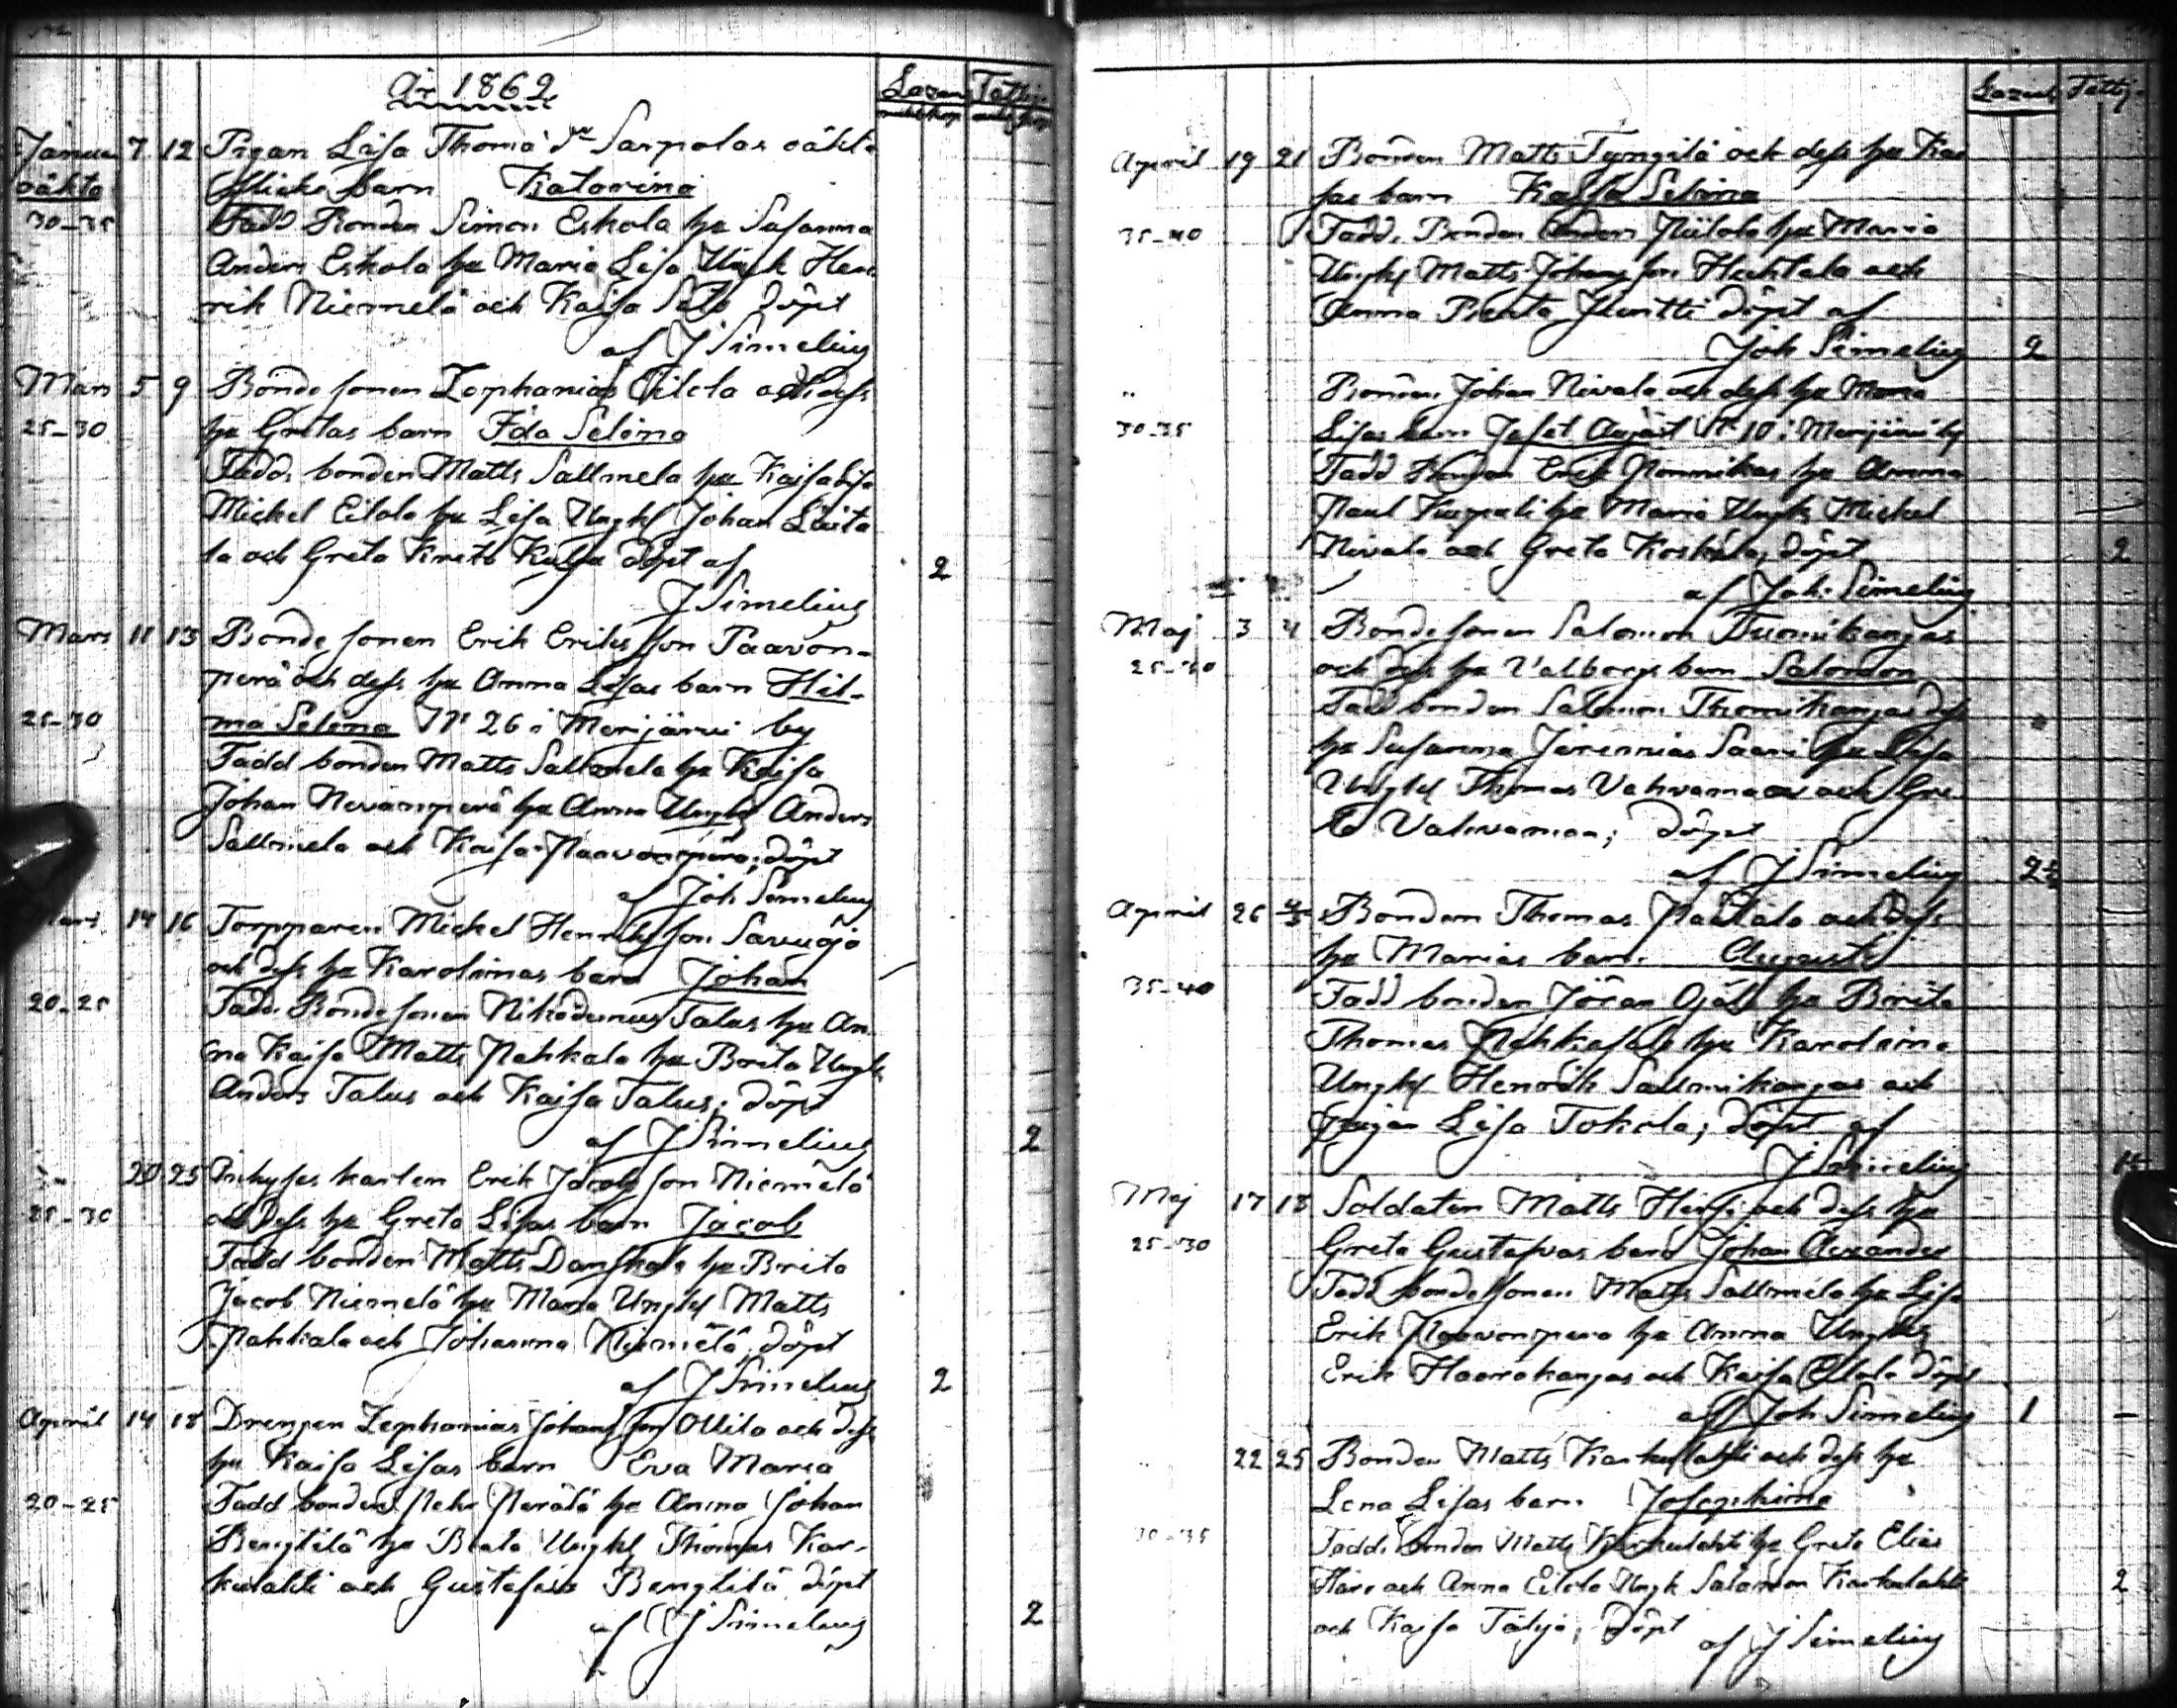 År 1862
Lazar Tattig
Janua 7 12 Pigan Lisa Thomä dr Sarpolas oäkta
oäkta flicke barn Katarina
30-35 Fadd Bonden Simon Eskola hu Susanna
Anders Eskola hu Maria Lisa Ungk Hen
rik Niemelä och Kajsa döpt
af J Simelius
Mars 5 9 Bonde sonen Zephanias Eilola och dess
25-30 hu Gretas barn Ida Selina
Fadd. bonden Matts Sallmela hu Kajsa Lisa
Mickel Eilola hu Lisa Ungkl Johan
la och Greta döpt af
2
J Simelius
Mars 11 13 Bonde sonen Erik Eriksson Paavon-
perä och dess hu Anna Lisas barn Hil-
25-30 ma Selina No 26 i Merijärvi by
Fadd bonden Matts Sallmela hu Kajsa
Johan Nevanperä hu Anna Ungkl Anders
Sallmela och Kajsa Paavonperä; döpt
af Joh Simelius
14 16 Torpparen Mickel Henriksson Savuojo
och dess hu Karolinas barn Johan
20-25 Fadd. Bonde sonen Nikodemus Talus hu An
na Kajsa Matts Pahkala hu Brita Ungk
Anders Talus och Kajsa Talus; döpt
af J Simelius 2
20 25 Inhyses karlen Erik Jacobsson Niemelä
25-30 och dess hu Greta Lisas barn Jacob
Fadd bonden Matts hu Brita
Jacob Niemelä hu Maria Ungkl Matts
Pahkala och Johanna Niemelä, döpt
af J Simelius 2
April 14 18 Drengen Zephanias Johansson Ollila och dess
hu Kajsa Lisas barn Eva Maria
20-25 Fadd bonden Pehr Perälä hu Anna Johan
Bengtilä hu Beata Ungkl Thomas Kar-
kulahti och Gustafva Bengtilä döpt
af J Simelius 2
Lazar Tattig
April 19 21 Bonden Matts Tyngilä och dess hu Kai
sas barn Kajsa Selina
35-40 Fadd. Bonden Anders hu Maria
Ungkl Matts Johansson Huhtala och
Anna Beata döpt af
Joh Simelius 2
" Bonden Johan Nivala och dess hu Maria
30-35 Lisas barn No 10 i Merijärvi by
Fadd Bonden Erik hu Anna
Paul hu Maria Ungk Mickel
Nivala och Greta Koskela, döpt 2
af Joh. Simelius
Maj 3 4 Bonde sonen Salomon Tuomikangas
25-30 och dess hu Valborgs barn Salomon
Fadd bonden Salomon Thomikangas dess
hu Susanna Jeremias Saari hu Lisa
Ungkl Thomas Vahvamaa och Gre
ta Vahvamaa; döpt
af J Simelius 2½
April 26 4/5 Bonden Thomas och dess
hu Marias barn Augusti
35-40 Fadd bonden Jöran Ojala hu Brita
Thomas hu Karolina
Ungkl Henrik Sallmikangas och
pigan Lisa Tokola; döpt af
J Simelius
Maj 17 18 Soldaten Matts Hirsi och dess hu
25-30 Greta Gustafvas barn Johan Alexander
Fadd bonde sonen Matts Sallmela hu Lisa
Erik Paavonpera hu Anna Ungkl
Erik Haarakangas och Kajsa döpt
af Joh Simelius 1 -
" 22 25 Bonden Matts Karkulahti och dess hu
Lena Lisas barn Josephina
30-35 Fadd. bonden Matts Karkulahti hu Greta Elias
och Anna Eilola Ungk Salamon Karkulahti 2
och Kajsa Tälyä, döpt
af J Simelius